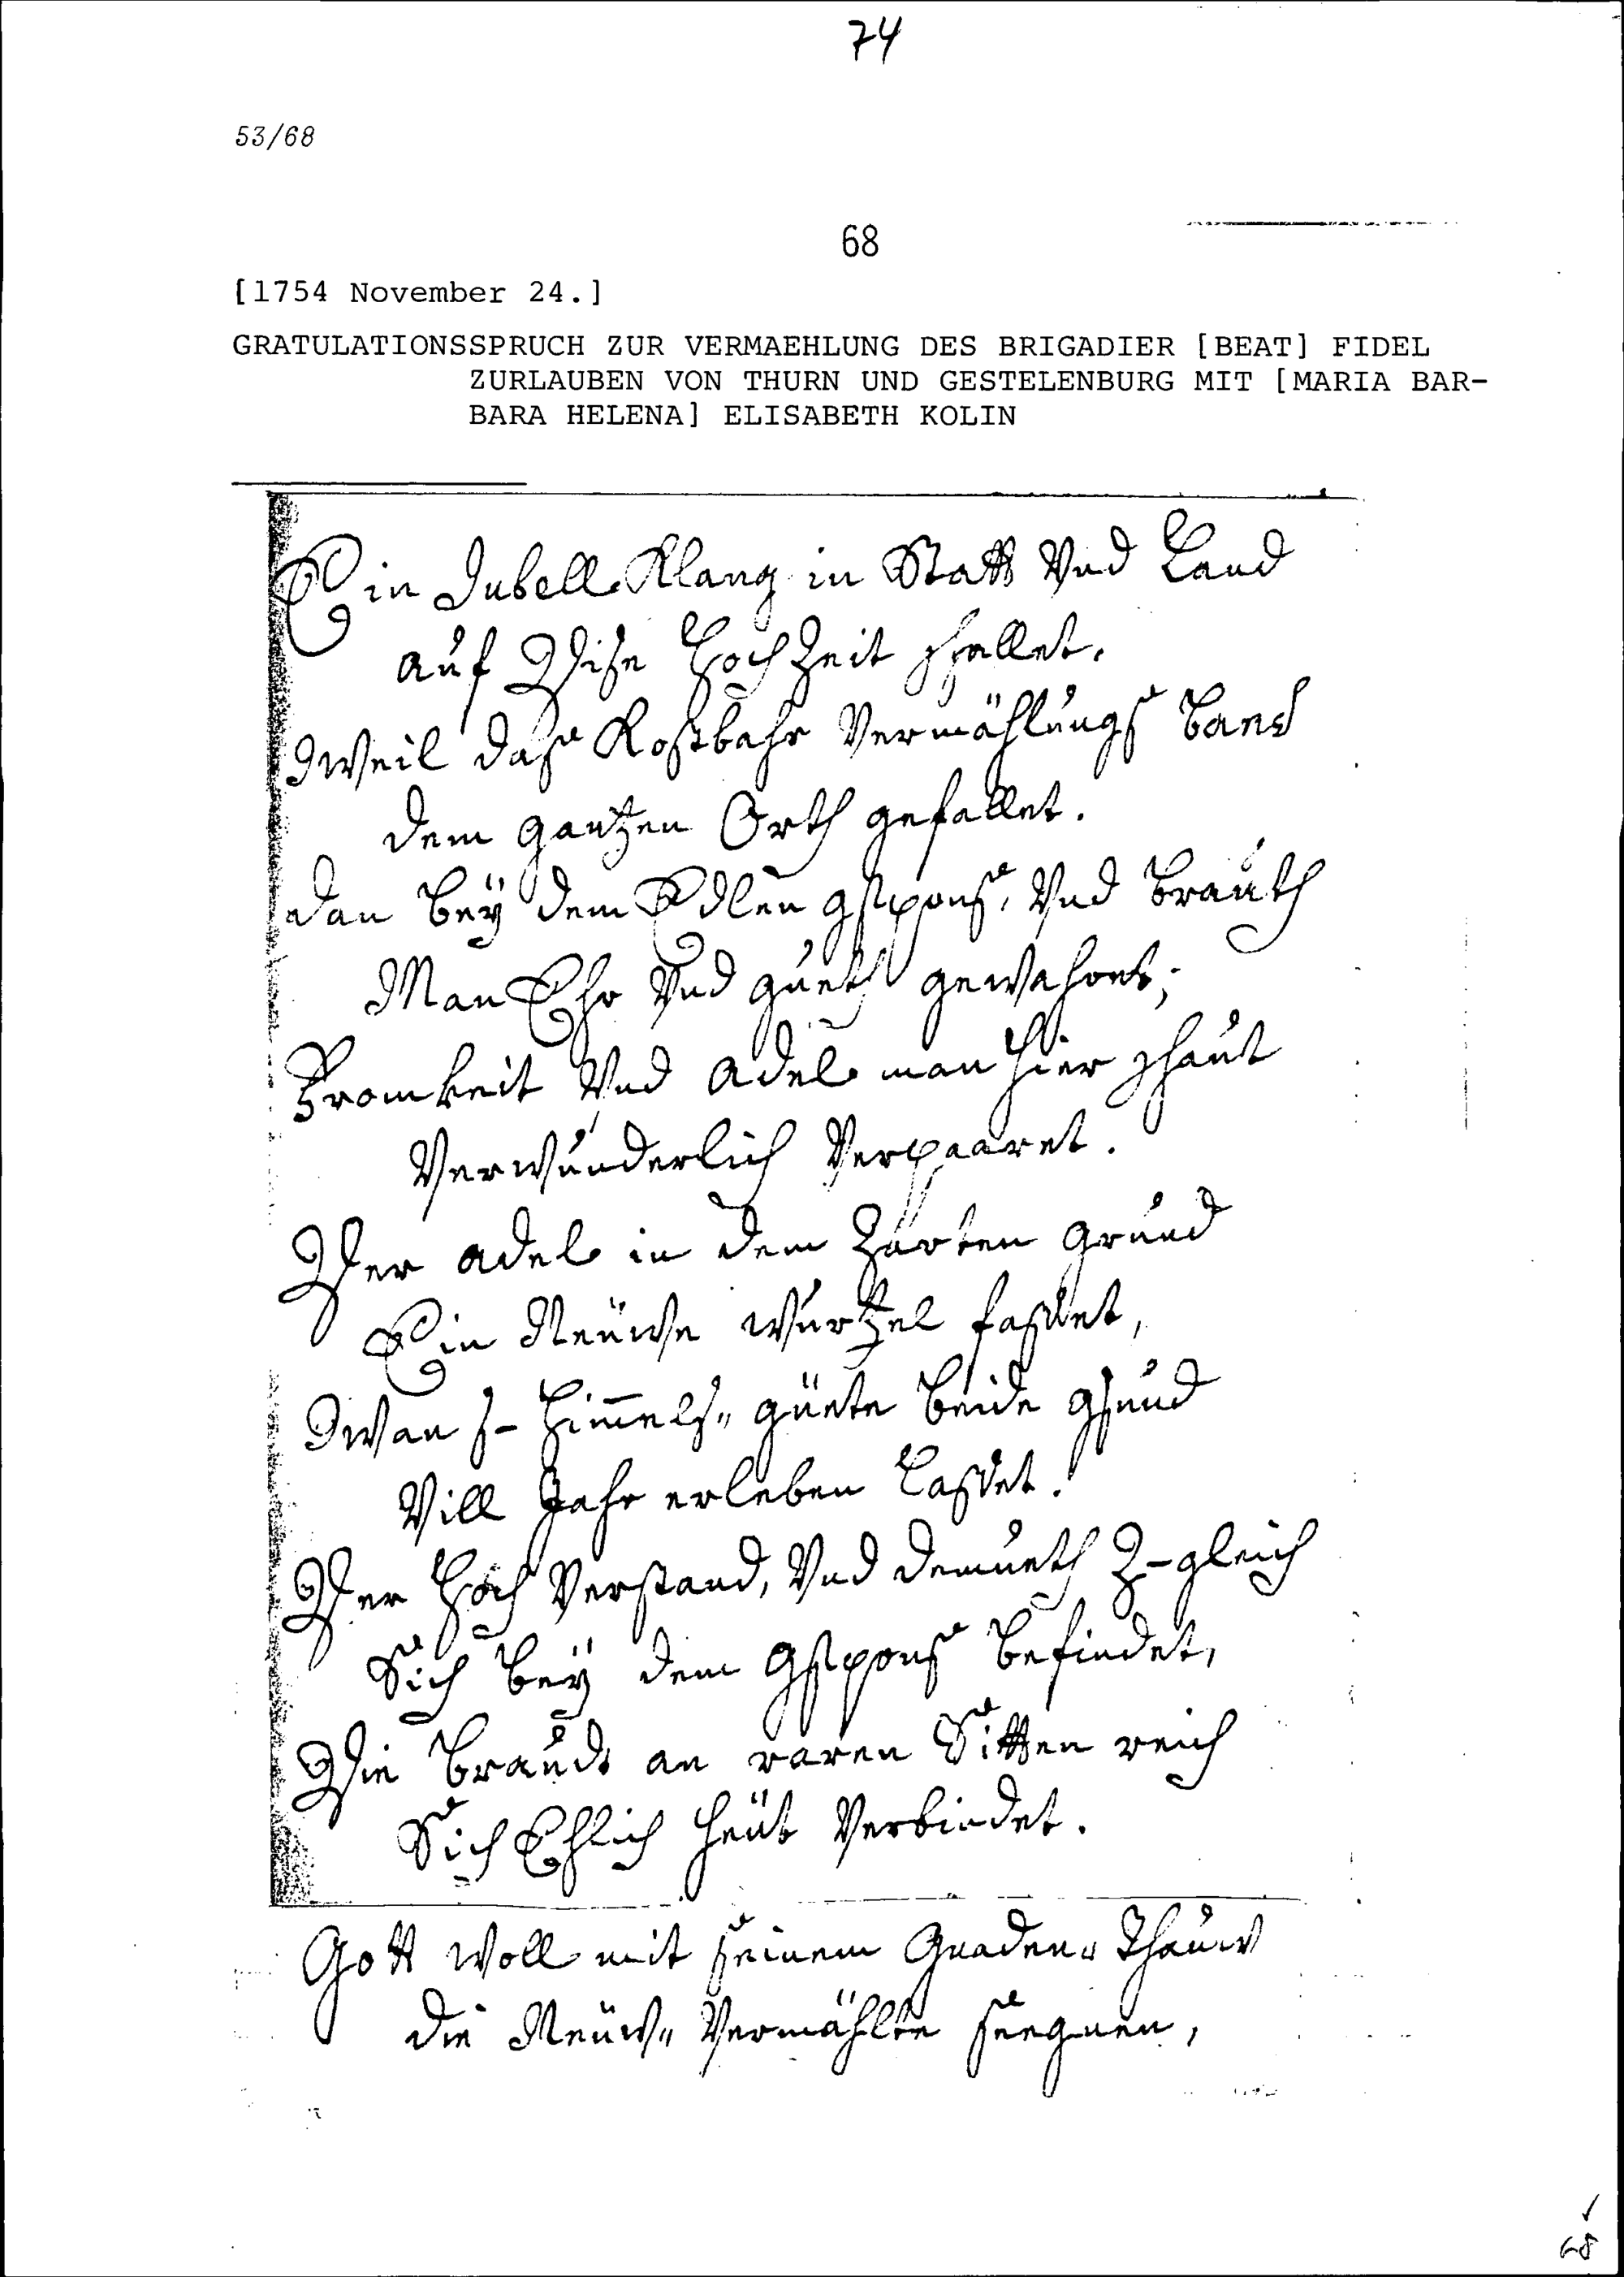 74
53/68
68
[1754 November 24.]
GRATULATIONSSPRUCH ZUR VERMAEHLUNG DES BRIGADIER [BEAT] FIDEL
ZURLAUBEN VON THURN UND GESTELENBURG MIT [MARIA BAR-
BARA HELENA] ELISABETH KOLIN
Ein Jubell Klang in Statt Und Land
auf Dise HochZeit schallet.
Weil daß Kostbahr Vermählungs band
dem gantzen Orth gefallet.
dan beÿ dem Edlen gspons, Und Brauth
Man Ehr Und gueth gewahret;
Fromkeit Und Adel man hier schaut
Verwunderlich Verpaaret.
Der adel in dem Zarten grund
Ein Neüwe wurtzel fasset,
wan s- Himmels" güete beide gsund
Vill Jahr erleben Lasset.
Der Hoch Verstand, Und demueth Z-gleich
Sich beÿ dem Gspons befindet,
Die Braudt an raren Sitten reich
Sich Ehlich heüt Verbindet.
Gott woll mit seinem Gnaden" Thauw
die Neüw" Vermählte seegnen,
68